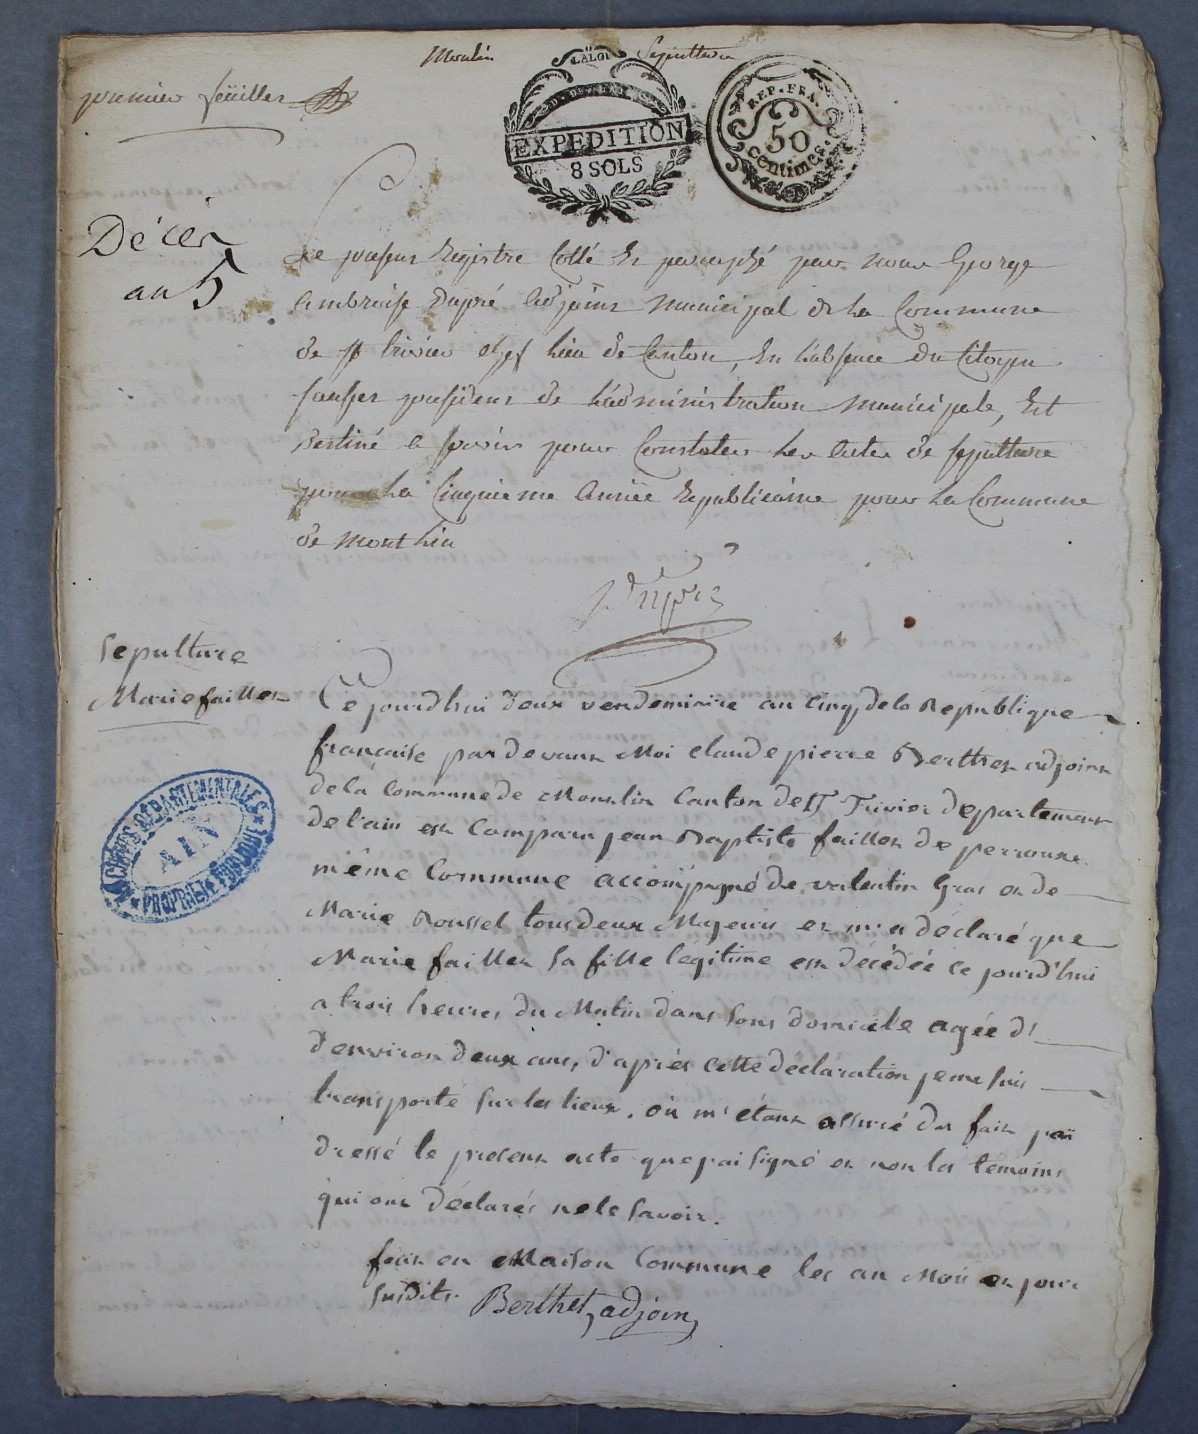 Monlin Sepulture
premier feüillet
LA LOI
EXPEDITION
8 SOLS
REP. FRA.
50
centimes
Décès
an 5
Le present Registre Cotté Et paraphé par nous George
Ambroise Dupré Adjoint municipal de La Commune
de st trivier chef lieu de Canton, En L'absence Du Citoyen
president de L'administration municipale, Est
destiné a servir pour Constater Les actes de sepulture
pour La Cinquieme Année Republicaine pour La Commune
de month
Dupré
Sepulture
Marie faillet
Ce jourd'hui deux vendemiaire an cinq de la Republique
française pardevant Moi claude pierre Berthet adjoint
de la Commune de Canton de st Trivier departement
de l'ain est Comparu jean Baptiste faillet de
même Commune accompagné de valentin Gras et de
Marie Roussel tous deux Majeurs et m'a déclaré que
Marie faillet sa fille legitime est décédée ce jourd'hui
a trois heures du Matin dans sons domicile agée d'
d'environ deux ans, d'après cette déclaration je me suis
transporté sur les lieux. où m'étant assuré du fait j'ai
dressé le présent acte que j'ai signé et non les témoins
qui ont déclarés ne le savoir.
fait en Maison Commune les an Mois et jour
susdits. Berthet, adjoin
ARCHIVES DÉPARTEMENTALES
AIN
PROPRIÉTÉ PUBLIQUE